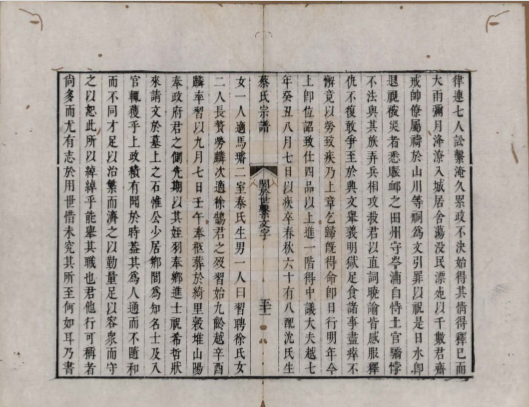 律連七人訟繫淹久累政不決始得其情得釋已而
大雨彌月洚潦入城居舍蕩没民漂沲以千數君齋
戒帥僚屬禱於山川等祠為文引罪以祝是日水卽
退視被災者悉賑卹之田州守岑 自恃土官驕悖
不法與其族弄兵相攻殺君以直詞曉諭皆感服釋
仇不復敢爭至於典文舉義明獄足食諸事盡瘁不
懈竟以勞致疾乃上章乞歸旣得命卽日行明年今
上卽位詔致仕四品以上進一階得中議大夫越七
年癸丑八月七日以疾卒春秋六十有八配沈氏生
蔡氏宗譜
女一人適馬璠二室蔡氏生男一人曰習聘徐氏女
二人長贅勞麟次適徐鵠君之歿習始九齡越辛酉
麟奉習以九月七日壬午奉柩葬於綺里裘堆山陽
奉政府君之側先期以其姪羽奉鄉進士祝希哲狀
來請文於墓上之石惟公少居鄉閭為知名士及入
官輒獲乎上政積有聞於時蓋其為人通而不隨和
而不同才足以治繁而濟之以勤量足以容衆而守
之以恕此所以綽綽乎能舉其職也君他行可稱者
尙多而尤有志於用世惜未究其所至何如耳乃書